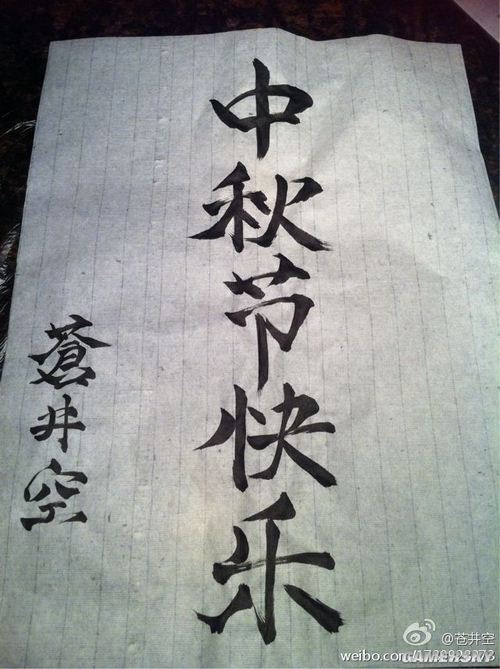 中秋节快乐
蒼井空
@苍井空
weibo.com/1739928273
GAMERSKY